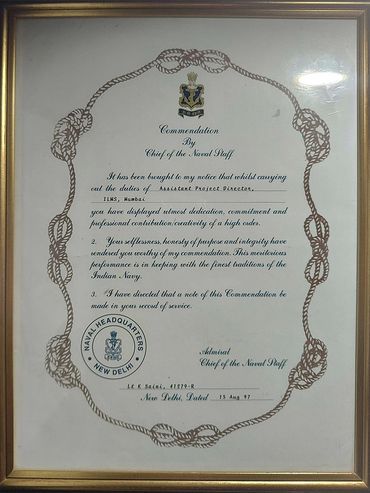 Commendation
By
Chief of the Naval Staff
It has been brought to my notice that whilst carrying
out the duties of Assistant Project Director,
ILMS, Mumbai
you have displayed utmost dedication, commitment and
professional contribution/creativity of a high order.
2. Your selflessness, honesty of purpose and integrity have
rendered you worthy of my commendation. This meritorious
performance is in keeping with the finest traditions of the
Indian Navy.
3. I have directed that a note of this Commendation be
made in your record of service.
NAVAL HEADQUARTERS
NEW DELHI
Admiral
Chief of the Naval Staff
Lt K Saini, 41579-R
New Delhi, Dated 15 Aug 97